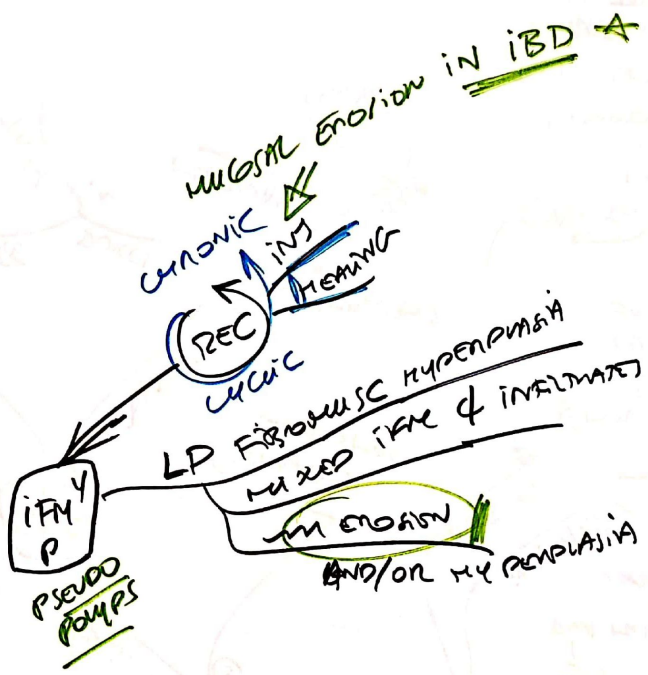 MUCOSAL EROSION IN iBD
CHRONIC
INJ
HEALING
REC
CYCLIC
LP FIBROMUSC HYPERPLASIA
MIXED iFM & INFILTRATES
iFMY
P
MM EROSION
AND/OR HYPERPLASIA
PSEUDO
POLYPS